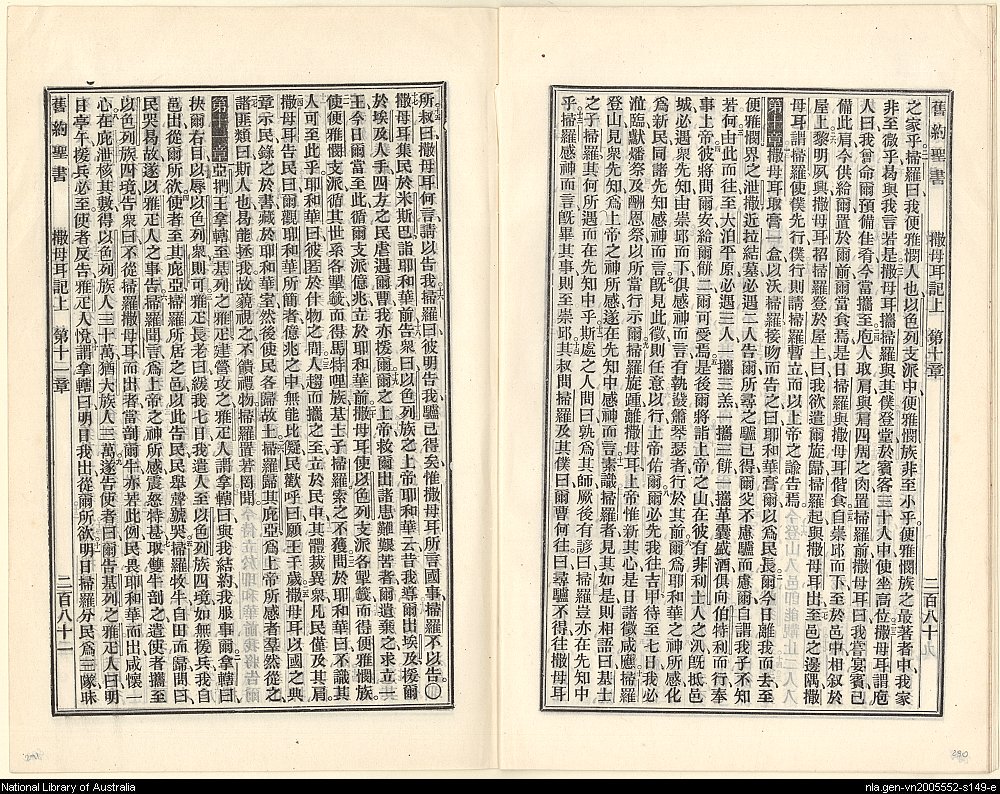 舊約聖書　撒母耳記上　第十章　二百八十
之家乎掃羅曰我便雅憫人也以色列支派中便雅憫族非至小乎便雅憫族之最著者中我家
非至微乎曷與我言若是撒母耳攜掃羅與其僕登堂於賓客三十人中使坐高位撒母耳謂庖
人曰我曾命爾預備佳肴今當攜至庖人取肩與肩四周之肉置掃羅前撒母耳曰我嘗宴賓已
備此肩今供給爾置於爾前爾當食焉是日掃羅與撒母耳偕食自崇邱而下至於邑中相叙於
屋上黎明夙興撒母耳招掃羅登於屋上曰我欲遣爾旋歸掃羅起與撒母耳出至邑之邊隅撒
母耳謂掃羅使僕先行僕行則請掃羅暫立而以上帝之諭告焉
第十章撒母耳取膏一盒以沃掃羅接吻而告之曰耶和華膏爾以為民長爾今日離我而去至
便雅憫界之泄撒近拉結墓必遇二人告爾所尋之驢已得爾父不慮驢而慮爾自謂我子不知
若何由此而往至大泊平原必遇三人一攜三羔一攜三餅一攜革囊盛酒俱向伯特利而行奉
事上帝彼將問爾安給爾餅二爾可受焉是後爾將詣上帝之山在彼有非利士人之汛既抵邑
城必遇衆先知由崇邱而下俱感神而言有執鼗簫琴瑟者行於其前爾為耶和華之神所感化
為新民同諸先知感神而言既見此徵則任意以行上帝佑爾爾必先我往吉甲待至七日我必
涖臨獻燔祭及酬恩祭以所當行示爾掃羅旋踵離撒母耳上帝惟新其心是日諸徵咸應掃羅
登山見衆先知為上帝之神所感遂在先知中感神而言素識掃羅者見其如是則相語曰基士
之子掃羅其何所遇而在先知中乎斯處之人間曰孰為其師厥後有諺曰掃羅豈亦在先知中
乎掃羅感神而言既畢其事則至崇邱其叔問掃羅及其僕曰爾曹何往曰尋驢不得往撒母耳
所叔曰撒母耳何言請以告我掃羅曰彼明告我驢已得矣惟撒母耳所言國事掃羅不以告
撒母耳集民於米斯巴詣耶和華前告衆曰以色列族之上帝耶和華云昔我導爾出埃及援爾
於埃及人手四方之民虐遇爾曹我亦援爾爾之上帝救爾出諸患難艱苦者爾遺棄之求立一
王今日爾當至此循爾支派億兆立於耶和華前撒母耳使以色列支派各掣籤而得便雅憫族
使便雅憫支派循其世系各掣籤而得馬特哩族基士子掃羅索之不獲間於耶和華曰不識其
人可至此乎耶和華曰彼匿於什物之間人趨而攜之至立於民中其體裁異衆凡民僅及其肩
撒母耳告民曰爾觀耶和華所簡者億兆之中無能比擬民歡呼曰願王千歲撒母耳以國之典
章示民錄之於書藏於耶和華室然後使民各歸故土掃羅歸其庇亞為上帝所感者羣然從之
諸匪類曰斯人也曷能拯我故藐視之不饋禮物掃羅置若罔聞
第十一章亞捫王拿轄至基列之雅疋建營攻之雅疋人謂拿轄曰與我結約我服事爾拿轄曰
抉爾右目以辱以色列衆則可雅疋長老曰緩我七日我遣人至以色列族四境如無援兵我自
邑出從爾所欲使者至其庇亞掃羅所居之邑以此告民民舉聲號哭掃羅牧牛自田而歸問曰
民哭曷故遂以雅疋人之事告掃羅聞言為上帝之神所感震怒特甚取雙牛剖之遣使者攜至
以色列族四境告衆曰不從掃羅撒母耳而出者當剖爾牛亦若此例民畏耶和華而出咸懷一
心在庇泄核其數得以色列族人三十萬猶大族人三萬遂告使者曰爾告基列之雅疋人曰明
日亭午援兵必至使者反告雅疋人悅謂拿轄曰明日我出從爾所欲明日掃羅分民為三隊昧
舊約聖書　撒母耳記上　第十一章　二百八十一
National Library of Australia
nla.gen-vn2005552-s149-e